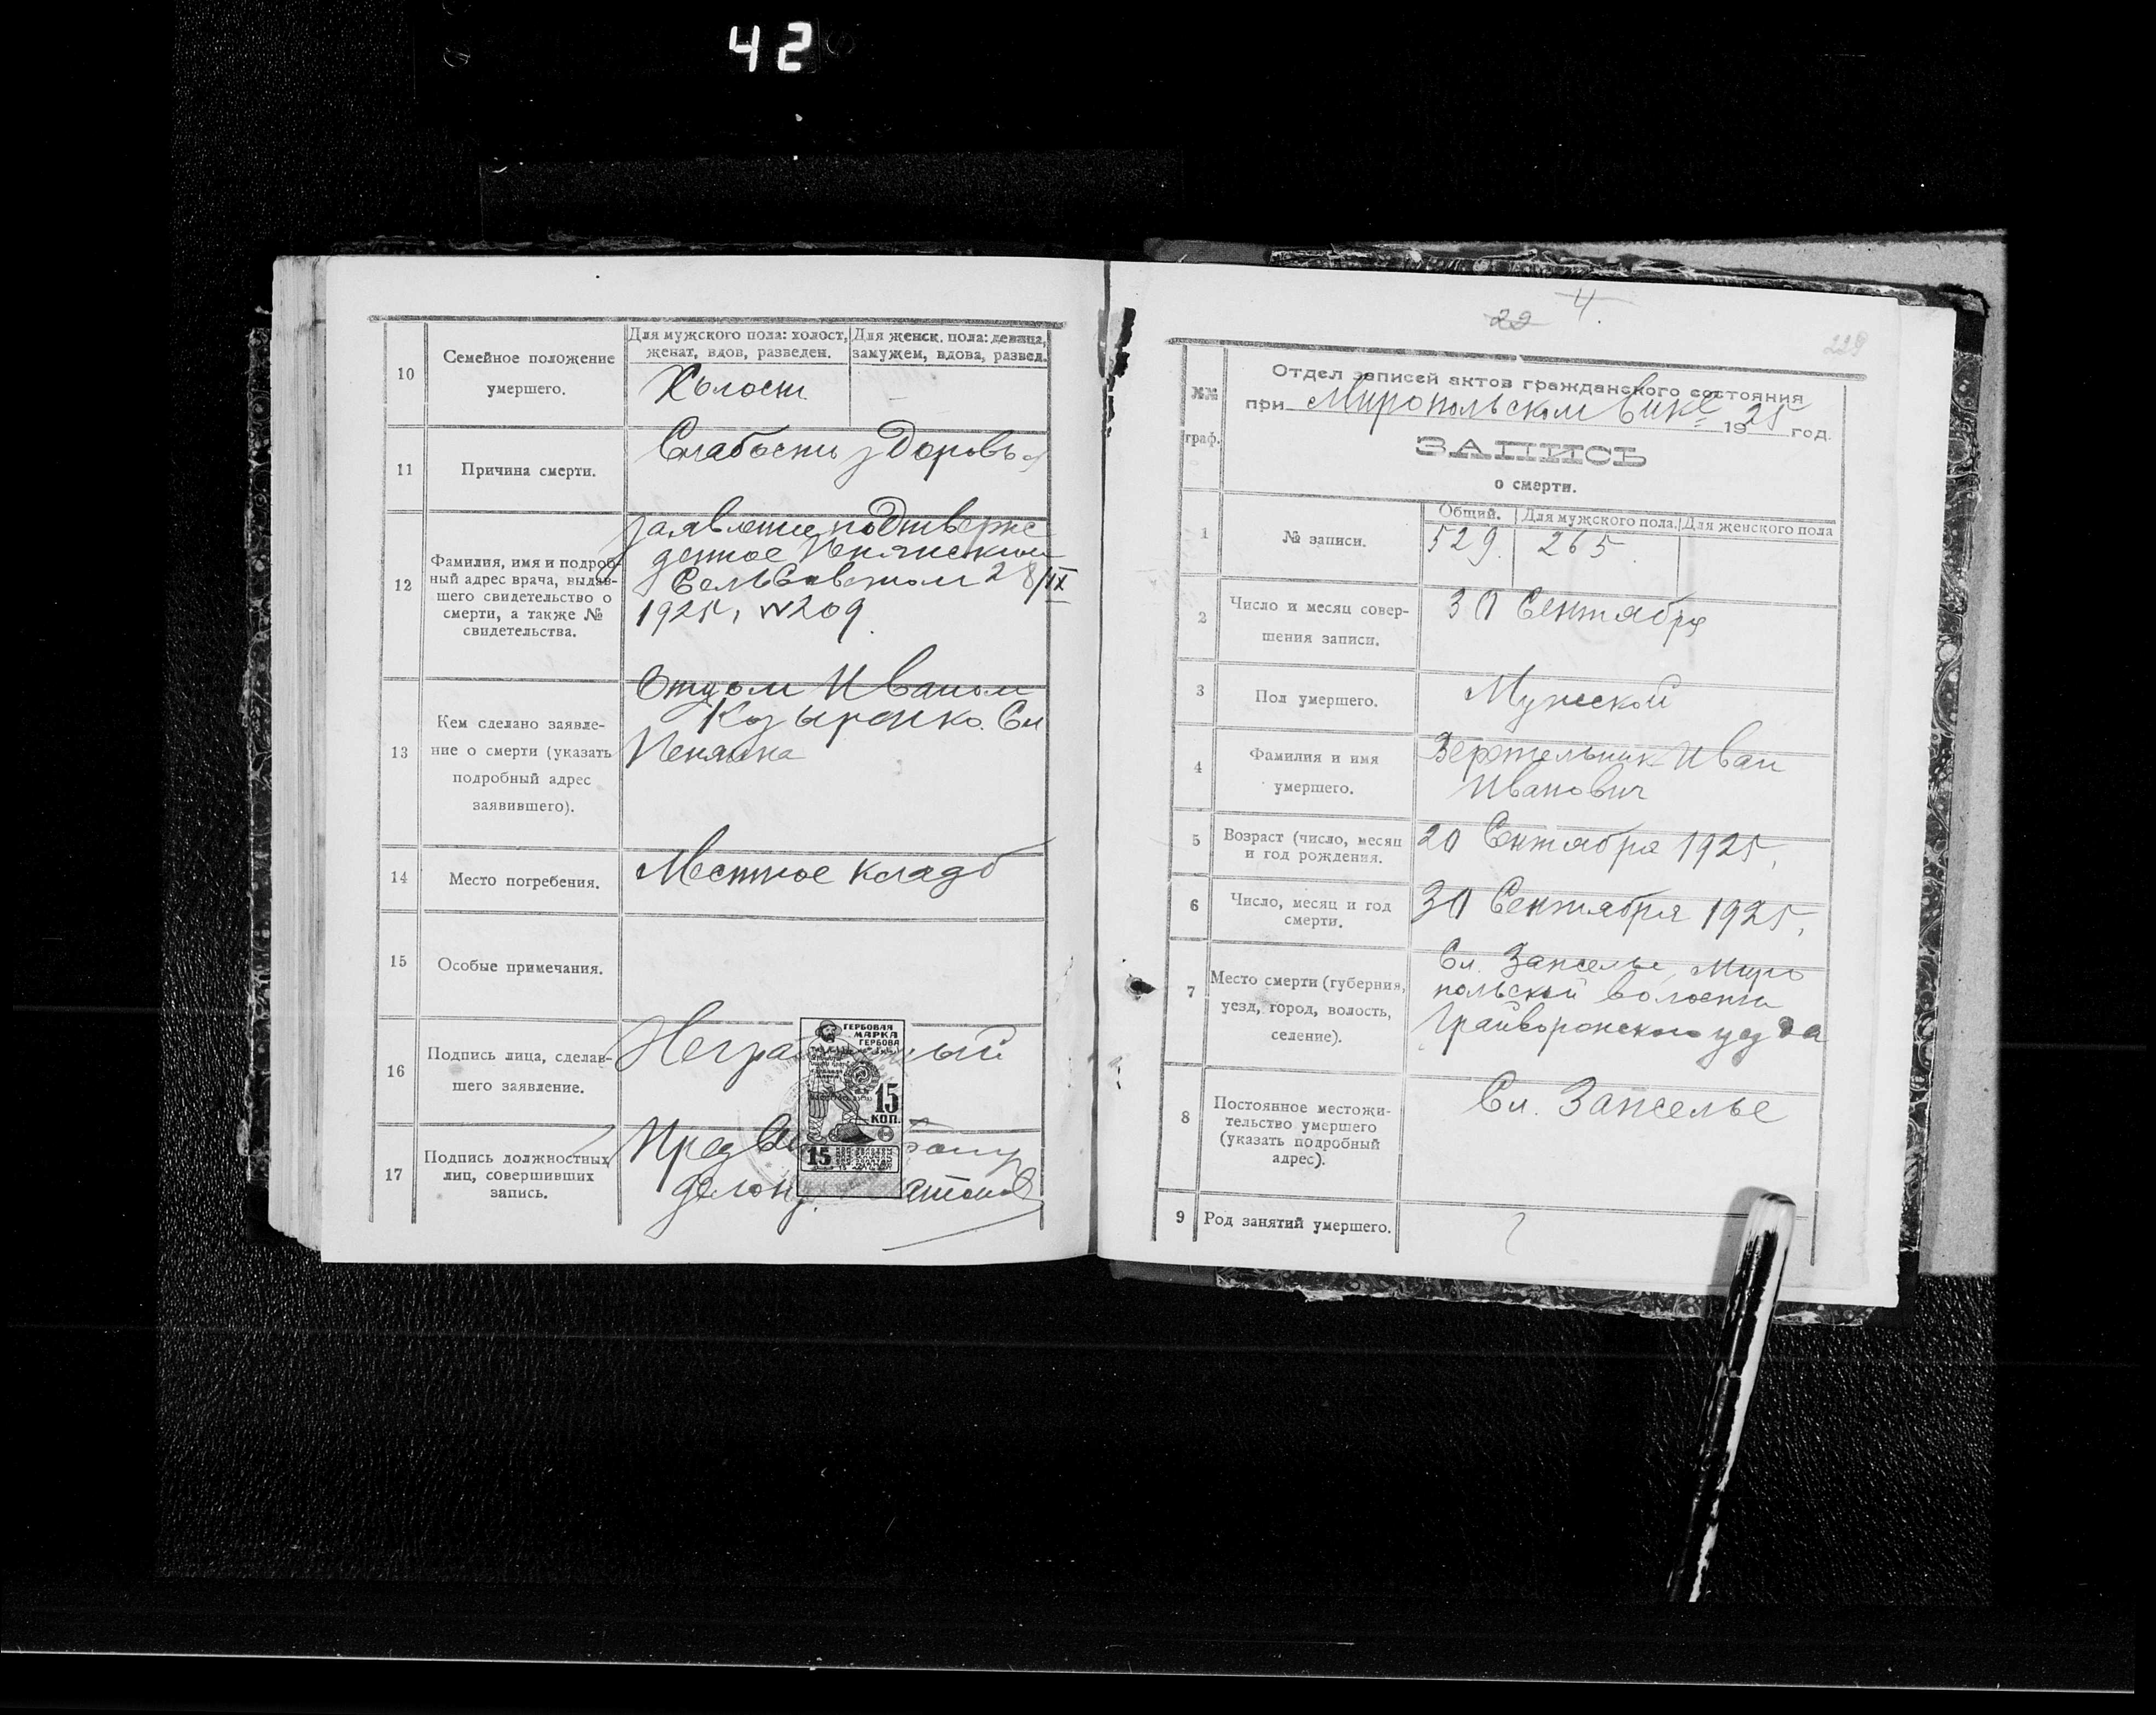 42
10
Семейное положение
умершего.
Для мужского пола: холост,
женат, вдов, разведен.
Для женск. пола: девица,
замужем, вдова, развед.
Холост
—
11
Причина смерти.
Слабость здоровья
12
Фамилия, имя и подроб-
ный адрес врача, выдав-
шего свидетельство о
смерти, а также №
свидетельства.
заявление подтверж
денное Пенянским
Сельсоветом 28/IX
1925, № 209
13
Кем сделано заявле-
ние о смерти (указать
подробный адрес
заявившего).
Отцом Иваном
Козыренко. Сл
14
Место погребения.
Местное кладб
15
Особые примечания.
16
Подпись лица, сделав-
шего заявление.
ГЕРБОВАЯ
МАРКА
ГЕРБОВА
15
КОП.
15
17
Подпись должностных
лиц, совершивших
запись.
Пред
4
22
229
№№
граф.
Отдел записей актов гражданского состояния
при Миропольском Вике 1925 год.
ЗАПИСЬ
о смерти.
1
№ записи.
Общий.
Для мужского пола.
Для женского пола
529.
265
2
Число и месяц совер-
шения записи.
30 Сентября
3
Пол умершего.
Мужской
4
Фамилия и имя
умершего.
Иван
Иванович
5
Возраст (число, месяц
и год рождения.
20 Сентября 1925,
6
Число, месяц и год
смерти.
30 Сентября 1925,
7
Место смерти (губерния,
уезд, город, волость,
селение).
Сл. Запселье Миро
польской волости
Грайворонского уезда
8
Постоянное местожи-
тельство умершего
(указать подробный
адрес).
Сл. Запселье
9
Род занятий умершего.